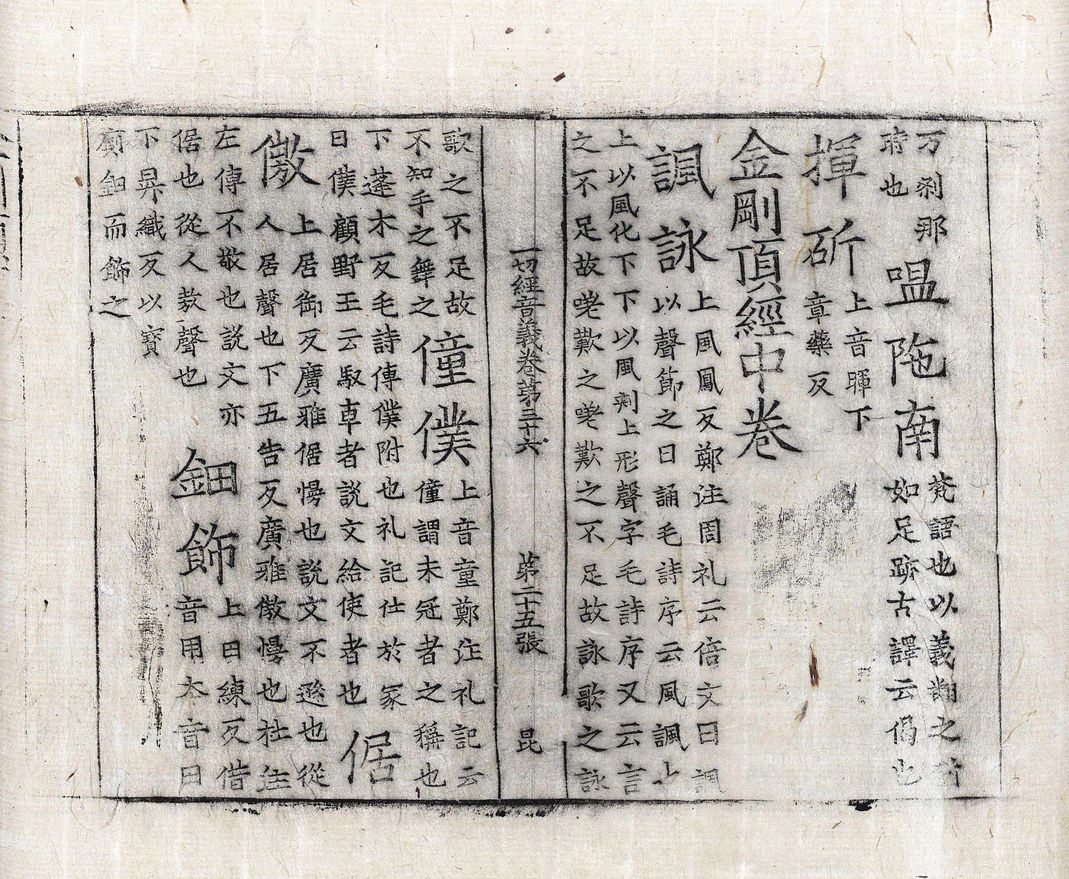 万刹那
時也
嗢陁南
梵語也以義翻之
如足跡古譯云偈也
揮斫
上音暉下
章藥反
金剛頂經中卷
諷詠
上風鳳反鄭注周礼云倍文曰諷
以聲節之曰誦毛詩序云風諷上
上以風化下下以風刺上形聲字毛詩序又云言
之不足故嗟歎之嗟歎之不足故詠歌之詠
一切經音義卷第三十六 第二十五張 昆
歌之不足故
不知手之舞之
僮僕
上音童鄭注礼記云
僮謂未冠者之稱也
下蓬木反毛詩傳僕附也礼記仕於家
曰僕顧野王云馭車者說文給使者也
倨
傲
上居御反廣雅倨慢也說文不遜也從
人居聲也下五告反廣雅傲慢也杜注
左傳不敬也說文亦
倨也從人敖聲也
鈿飾
上曰練反借
音用夲音曰
下昇織反以寶
廁鈿而飾之